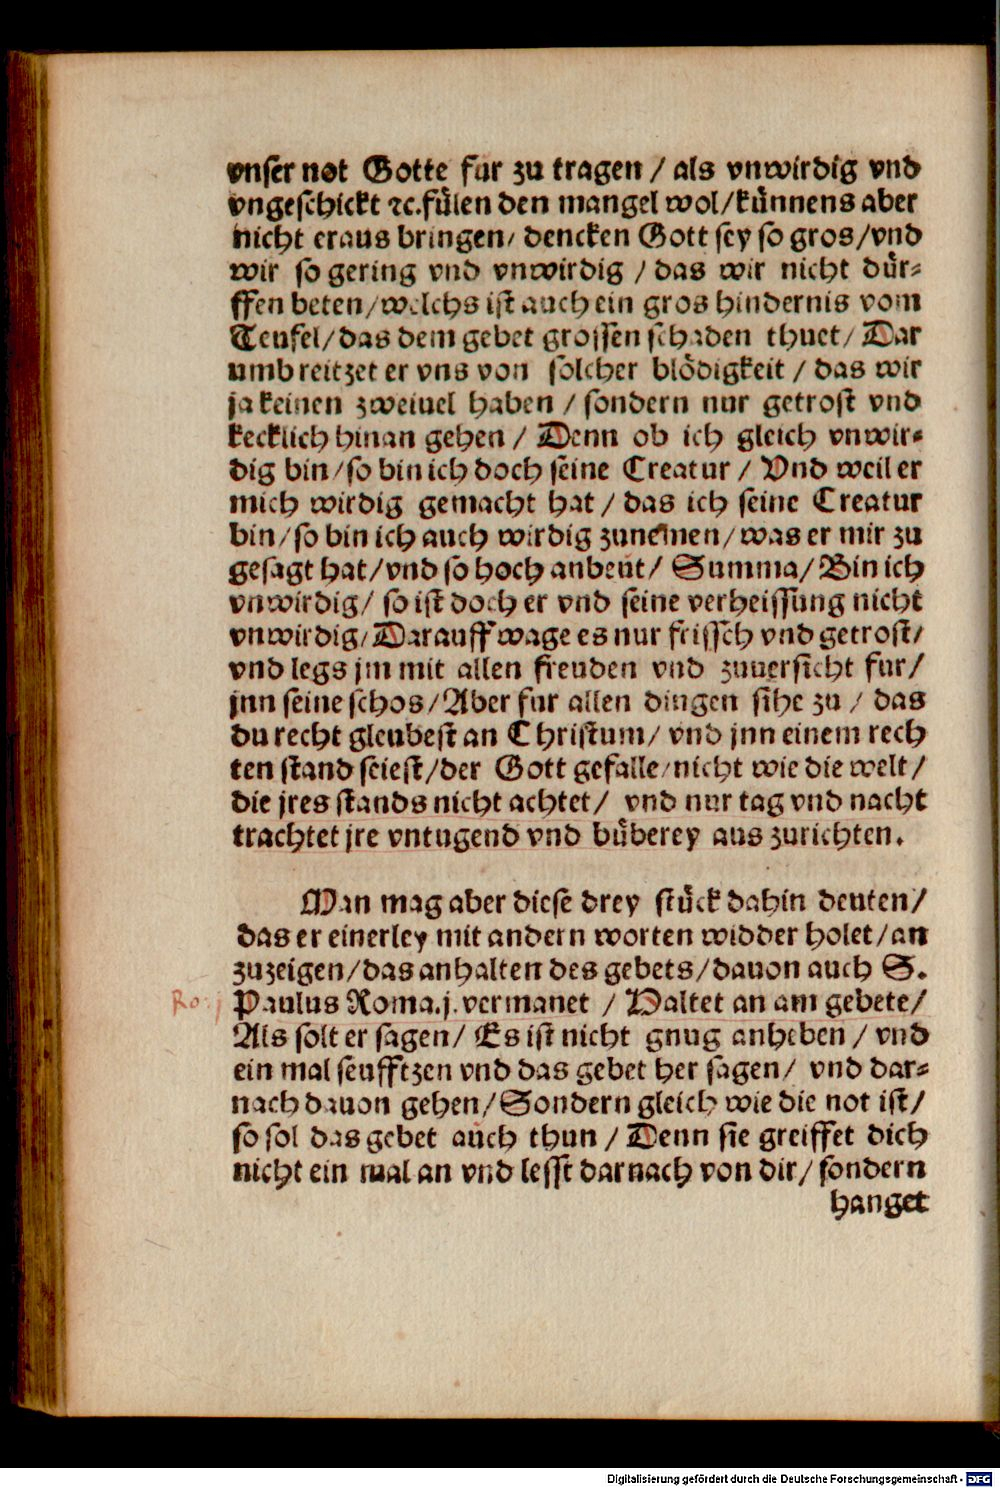 vnser not Gotte fur zu tragen / als vnwirdig vnd
vngeschickt ꝛc. fülen den mangel wol/künnens aber
nicht eraus bringen/ dencken Gott sey so gros/vnd
wir so gering vnd vnwirdig / das wir nicht dür⸗
ffen beten/welchs ist auch ein gros hindernis vom
Teufel/das dem gebet grossen schaden thuet/ Dar
umb reitzet er vns von solcher blödigkeit / das wir
ja keinen zweiuel haben / sondern nur getrost vnd
kecklich hinan gehen / Denn ob ich gleich vnwir⸗
dig bin/so bin ich doch seine Creatur / Vnd weil er
mich wirdig gemacht hat / das ich seine Creatur
bin/so bin ich auch wirdig zunemen/was er mir zu
gesagt hat/vnd so hoch anbeut/ Summa/Bin ich
vnwirdig/ so ist doch er vnd seine verheissung nicht
vnwirdig/Darauff wage es nur frissch vnd getrost/
vnd legs jm mit allen freuden vnd zuuersicht fur/
jnn seine schos/Aber fur allen dingen sihe zu / das
du recht gleubest an Christum/ vnd jnn einem rech
ten stand seiest/der Gott gefalle/nicht wie die welt/
die jres stands nicht achtet/ vnd nur tag vnd nacht
trachtet jre vntugend vnd büberey aus zurichten.
Man mag aber diese drey stück dahin deuten/
das er einerley mit andern worten widder holet/an
zuzeigen/das anhalten des gebets/dauon auch S.
Ro. j
Paulus Roma.j. vermanet / Haltet an am gebete/
Als solt er sagen/ Es ist nicht gnug anheben / vnd
ein mal seufftzen vnd das gebet her sagen/ vnd dar⸗
nach dauon gehen/Sondern gleich wie die not ist/
so sol das gebet auch thun / Denn sie greiffet dich
nicht ein mal an vnd lesst darnach von dir/ sondern
hanget
Digitalisierung gefördert durch die Deutsche Forschungsgemeinschaft - DFG